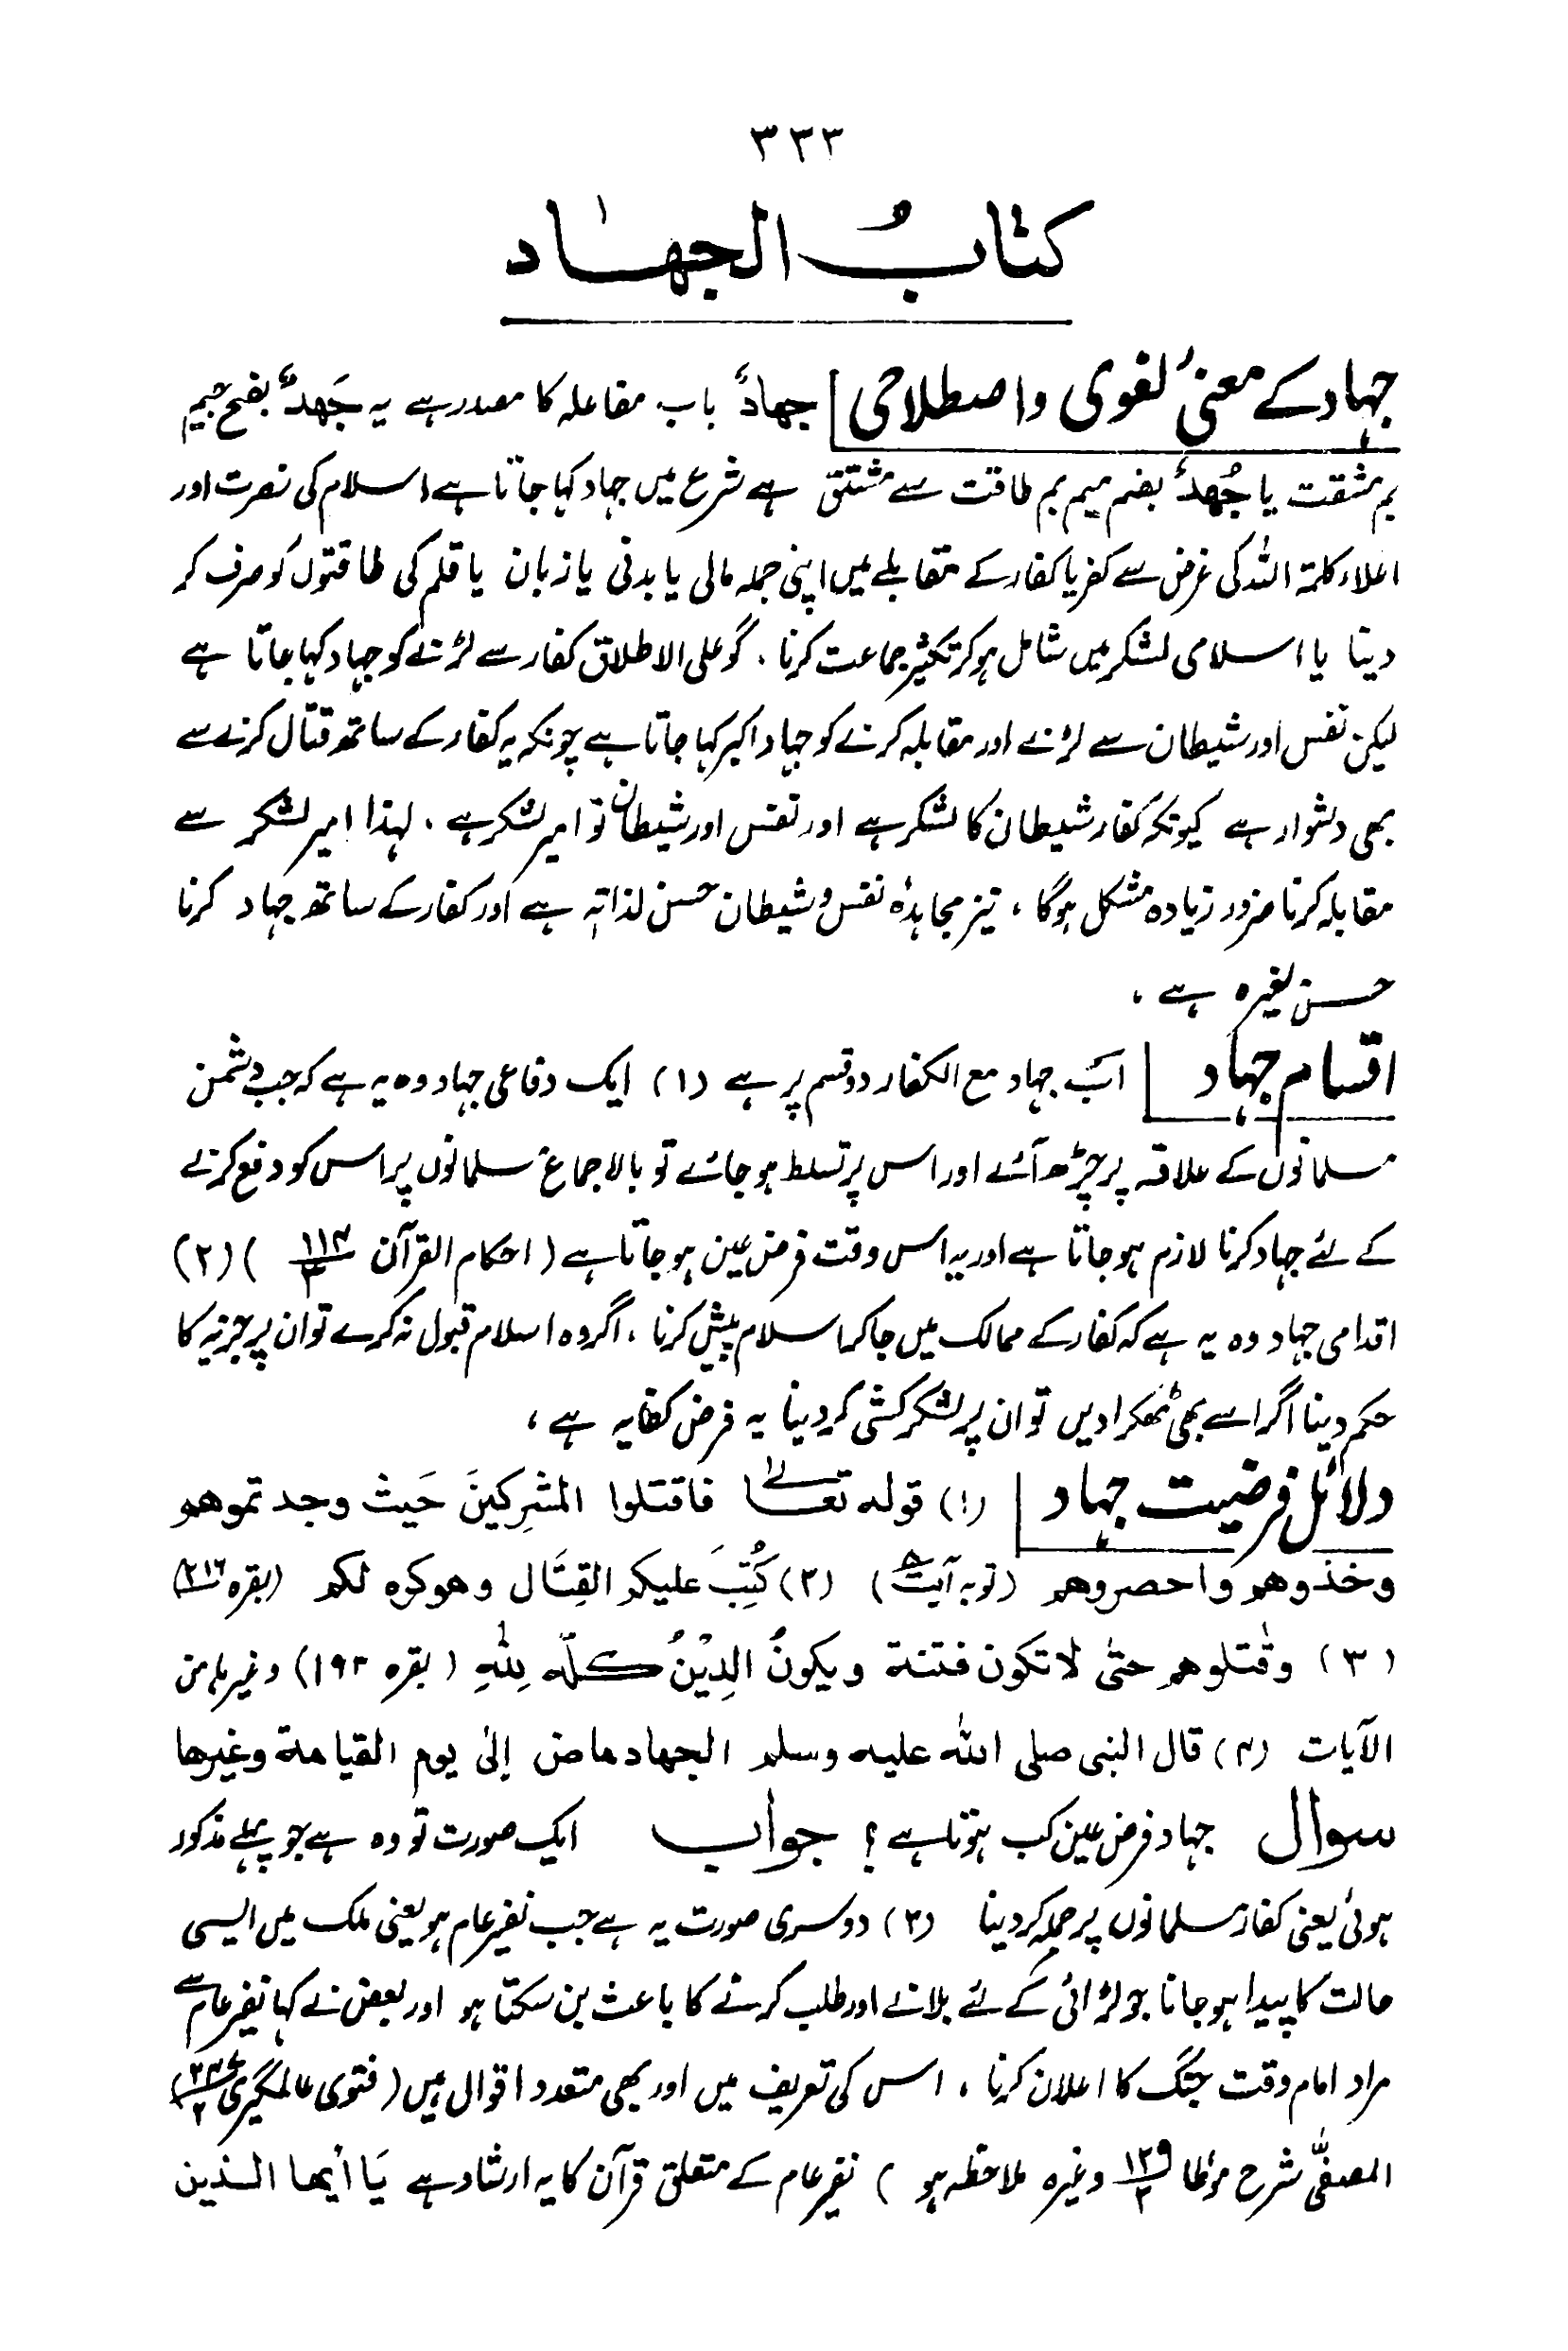 ۳۳۳
کتابُ الجہاد
جہاد کے معنیٰ لغوی واصطلاحی | جهادٌ باب مفاعلہ کا مصدر ہے یہ جَهدٌ بفتح جیم
بم مشقت یا جُهدٌ بضم میم بم طاقت سے مشتق ہے شرع میں جہاد کہا جاتا ہے اسلام کی نصرت اور
اعلاء کلمۃ اللہ کی غرض سے کفر یا کفار کے مقابلے میں اپنی جملہ مالی یا بدنی یا زبان یا قلم کی طاقتوں کو صرف کر
دینا یا اسلامی لشکر میں شامل ہو کر تکثیر جماعت کرنا ، گو علی الاطلاق کفار سے لڑنے کو جہاد کہا جاتا ہے
لیکن نفس اور شیطان سے لڑنے اور مقابلہ کرنے کو جہاد اکبر کہا جاتا ہے چونکہ یہ کفار کے ساتھ قتال کرنے سے
بھی دشوار ہے کیونکہ کفار شیطان کا لشکر ہے اور نفس اور شیطان تو امیر لشکر ہے ، لہذا امیر لشکر سے
مقابلہ کرنا ضرور زیادہ مشکل ہوگا ، نیز مجاہدۂ نفس و شیطان حسن لذاتہٖ ہے اور کفار کے ساتھ جہاد کرنا
حسن لغیرہ ہے ،
اقسام جہاد | اب جہاد مع الکفار دو قسم پر ہے (۱) ایک دفاعی جہاد وہ یہ ہے کہ جب دشمن
مسلمانوں کے علاقہ پر چڑھ آئے اور اس پر تسلط ہو جائے تو بالاجماع مسلمانوں پر اس کو دفع کرنے
کے لئے جہاد کرنا لازم ہو جاتا ہے اور یہ اس وقت فرض عین ہو جاتا ہے (احکام القرآن ۱۱۴/۳) (۲)
اقدامی جہاد وہ یہ ہے کہ کفار کے ممالک میں جا کر اسلام پیش کرنا ، اگر وہ اسلام قبول نہ کرے تو ان پر جزیہ کا
حکم دینا اگر اسے بھی ٹھکرا دیں تو ان پر لشکر کشی کر دینا یہ فرض کفایہ ہے ،
دلائل فرضیت جہاد | (۱) قولہ تعالیٰ فاقتلوا المشرِکینَ حَیث وجد تموھم
وخذوھم واحصروھم (توبہ آیت ۵) (۲) کُتِبَ علیکم القِتَال وھو کرہ لکم (بقرہ ۲۱۶)
(۳) وقٰتلوھم حتیٰ لا تکون فتنة ویکونُ الدِیْنُ کلّہ لِلّٰہِ (بقرہ ۱۹۳) وغیرہا من
الآیات (۴) قال النبی صلی اللہ علیہ وسلم الجہاد ماض إلیٰ یوم القیامة وغیرھا
سوال جہاد فرض عین کب ہوتا ہے ؟ جواب ایک صورت تو وہ ہے جو پہلے مذکور
ہوئی یعنی کفار مسلمانوں پر حملہ کر دینا (۲) دوسری صورت یہ ہے جب نفیر عام ہو یعنی ملک میں ایسی
حالت کا پیدا ہو جانا جو لڑائی کے لئے بلانے اور طلب کرنے کا باعث بن سکتا ہو اور بعض نے کہا نفیر عام سے
مراد امام وقت جنگ کا اعلان کرنا ، اس کی تعریف میں اور بھی متعدد اقوال ہیں (فتوی عالمگیری
المصفّٰی شرح مؤطا ۱۲۹/۲ وغیرہ ملاحظہ ہو ) نفیر عام کے متعلق قرآن کا یہ ارشاد ہے یَا أیھا الذین